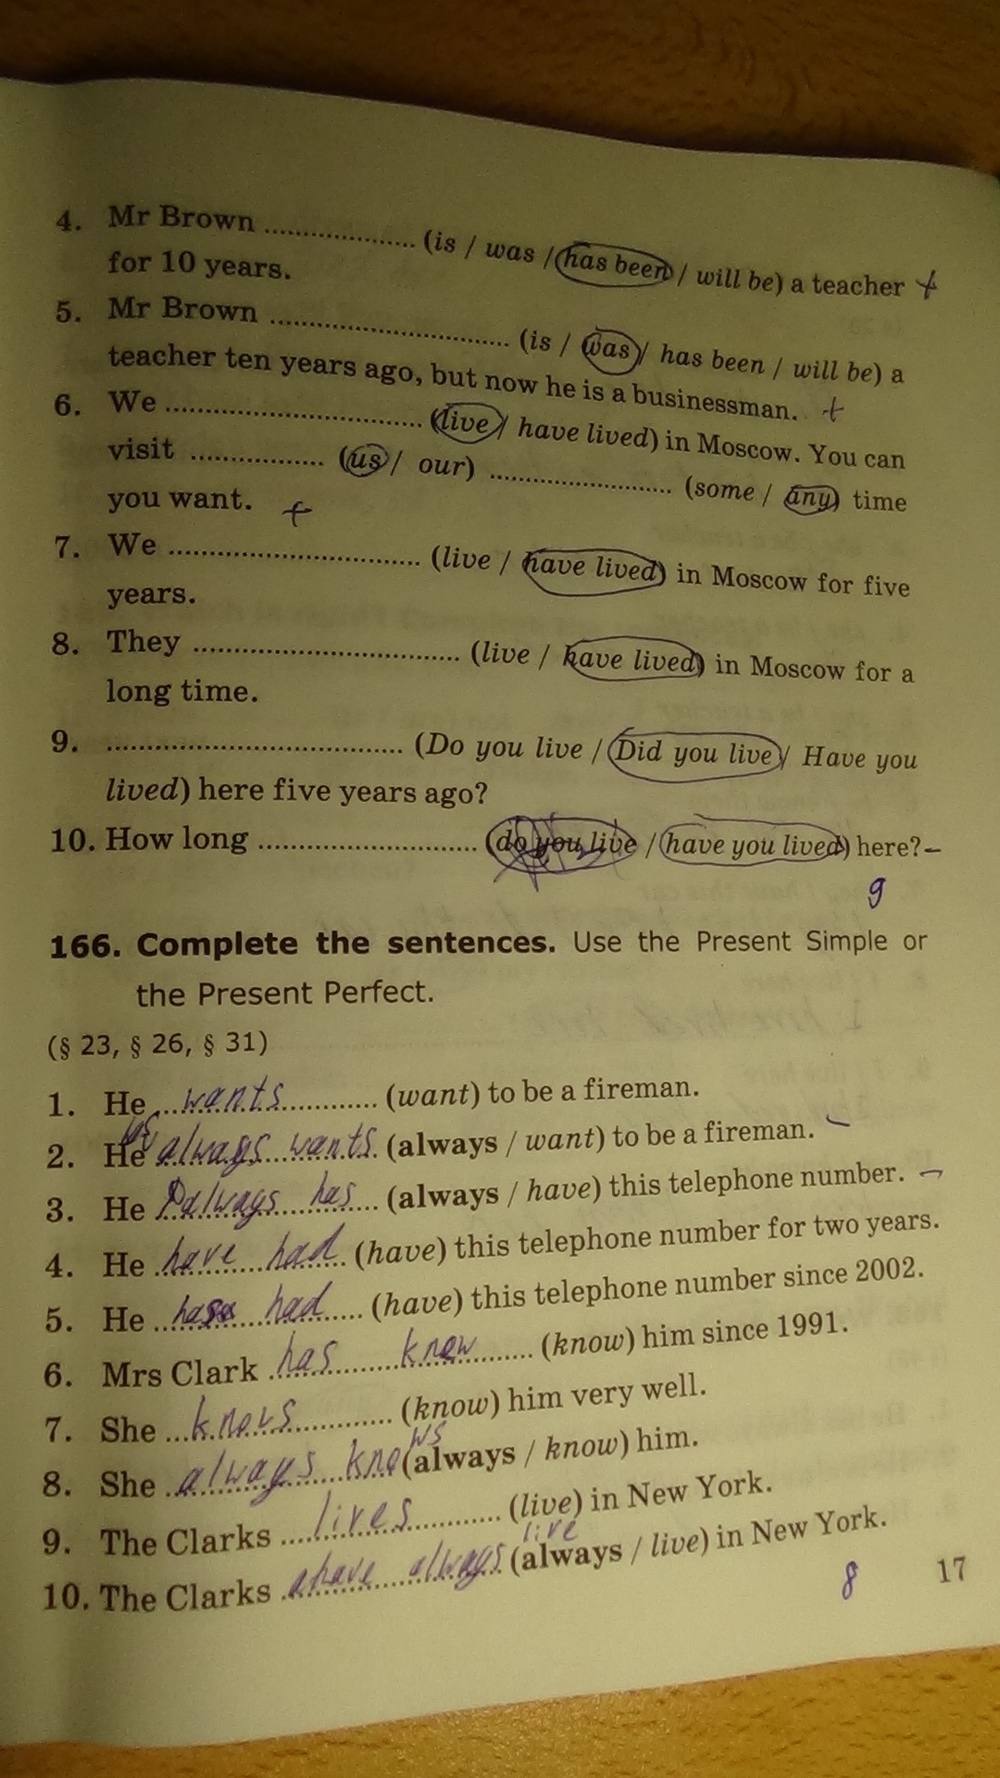 4. Mr Brown .................. (is / was / has been / will be) a teacher +
for 10 years.
5. Mr Brown ............................. (is / was / has been / will be) a
teacher ten years ago, but now he is a businessman. +
6. We ............................... (live / have lived) in Moscow. You can
visit ................ (us / our) ...................... (some / any) time
you want. +
7. We .............................. (live / have lived) in Moscow for five
years.
8. They ................................ (live / have lived) in Moscow for a
long time.
9. .................................... (Do you live / Did you live / Have you
lived) here five years ago?
10. How long .......................... (do you live / have you lived) here? –
9
166. Complete the sentences. Use the Present Simple or
the Present Perfect.
(§ 23, § 26, § 31)
1. He wants (want) to be a fireman.
2. He always wants (always / want) to be a fireman. –
3. He always has (always / have) this telephone number. –
4. He have had (have) this telephone number for two years.
5. He has had (have) this telephone number since 2002.
6. Mrs Clark has know (know) him since 1991.
7. She knows (know) him very well.
8. She always knows (always / know) him.
9. The Clarks lives (live) in New York.
10. The Clarks have always live (always / live) in New York.
8
17